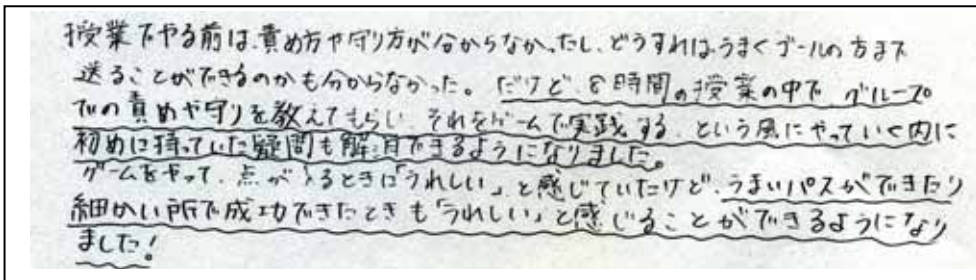 授業でやる前は、責め方や守り方が分からなかったし、どうすればうまくゴールの方まで
送ることができるのかも分からなかった。だけど、8時間の授業の中で、グループ
での責めや守りを教えてもらい、それをゲームで実践する、という風にやっていく内に
初めに持っていた疑問も解消できるようになりました。
ゲームをやって、点が入るときは「うれしい」と感じていたけど、うまいパスができたり
細かい所で成功できたときも「うれしい」と感じることができるようになり
ました!